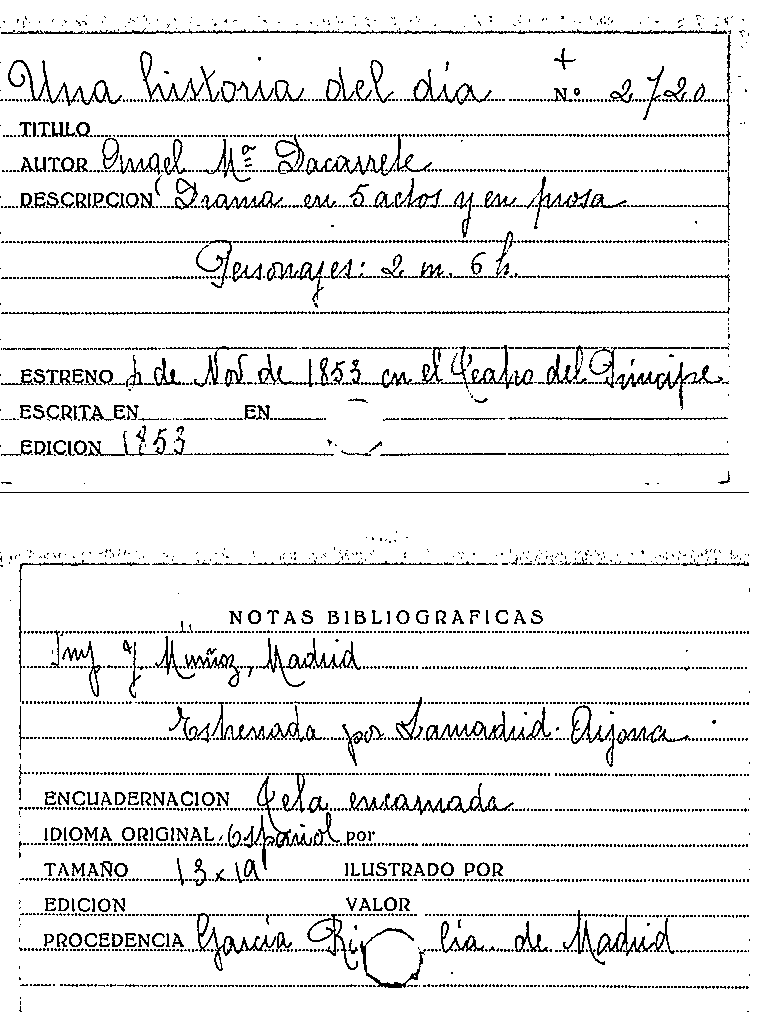 +
Una historia del día Nº 2720
TITULO
AUTOR Angel Mª Dacarrete
DESCRIPCION Drama en 5 actos y en prosa
Personajes: 2 m. 6 h.
ESTRENO de Nov de 1853 en el Teatro del Príncipe
ESCRITA EN EN
EDICION 1853
NOTAS BIBLIOGRAFICAS
Imp. J Muñoz, Madrid
Estrenada por Lamadrid. Arjona.
ENCUADERNACION Tela encarnada
IDIOMA ORIGINAL Español por
TAMAÑO 13 x 19 ILUSTRADO POR
EDICION VALOR
PROCEDENCIA García Ri de Madrid